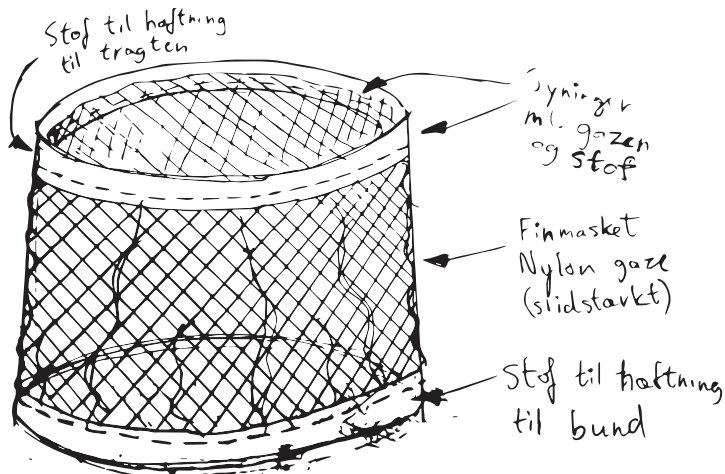 Stof til hæftning
til tragten
Syninger
ml. gazen
og stof
Finmasket
Nylon gaze
(slidstærkt)
Stof til hæftning
til bund